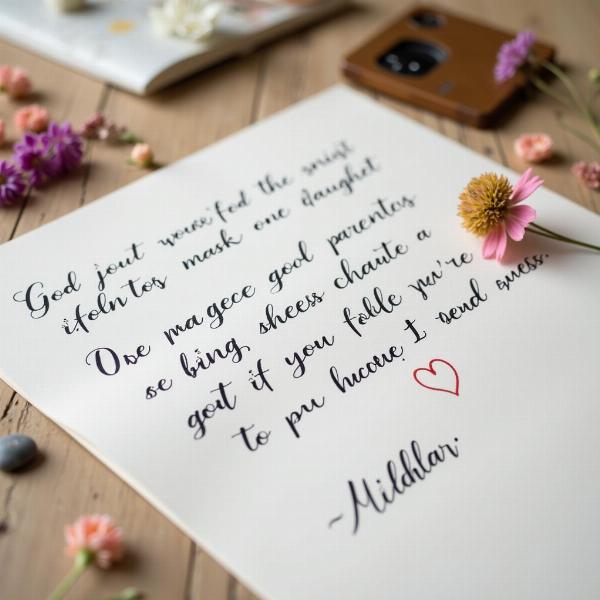 God jout wouse'fod the snigt
ifoln tos mask one dlaughet
Ose magece gool parentas
se bing, sheess chante a
goit if you foble you're
to pu hucoue. I send sness.
~Mildhlar.